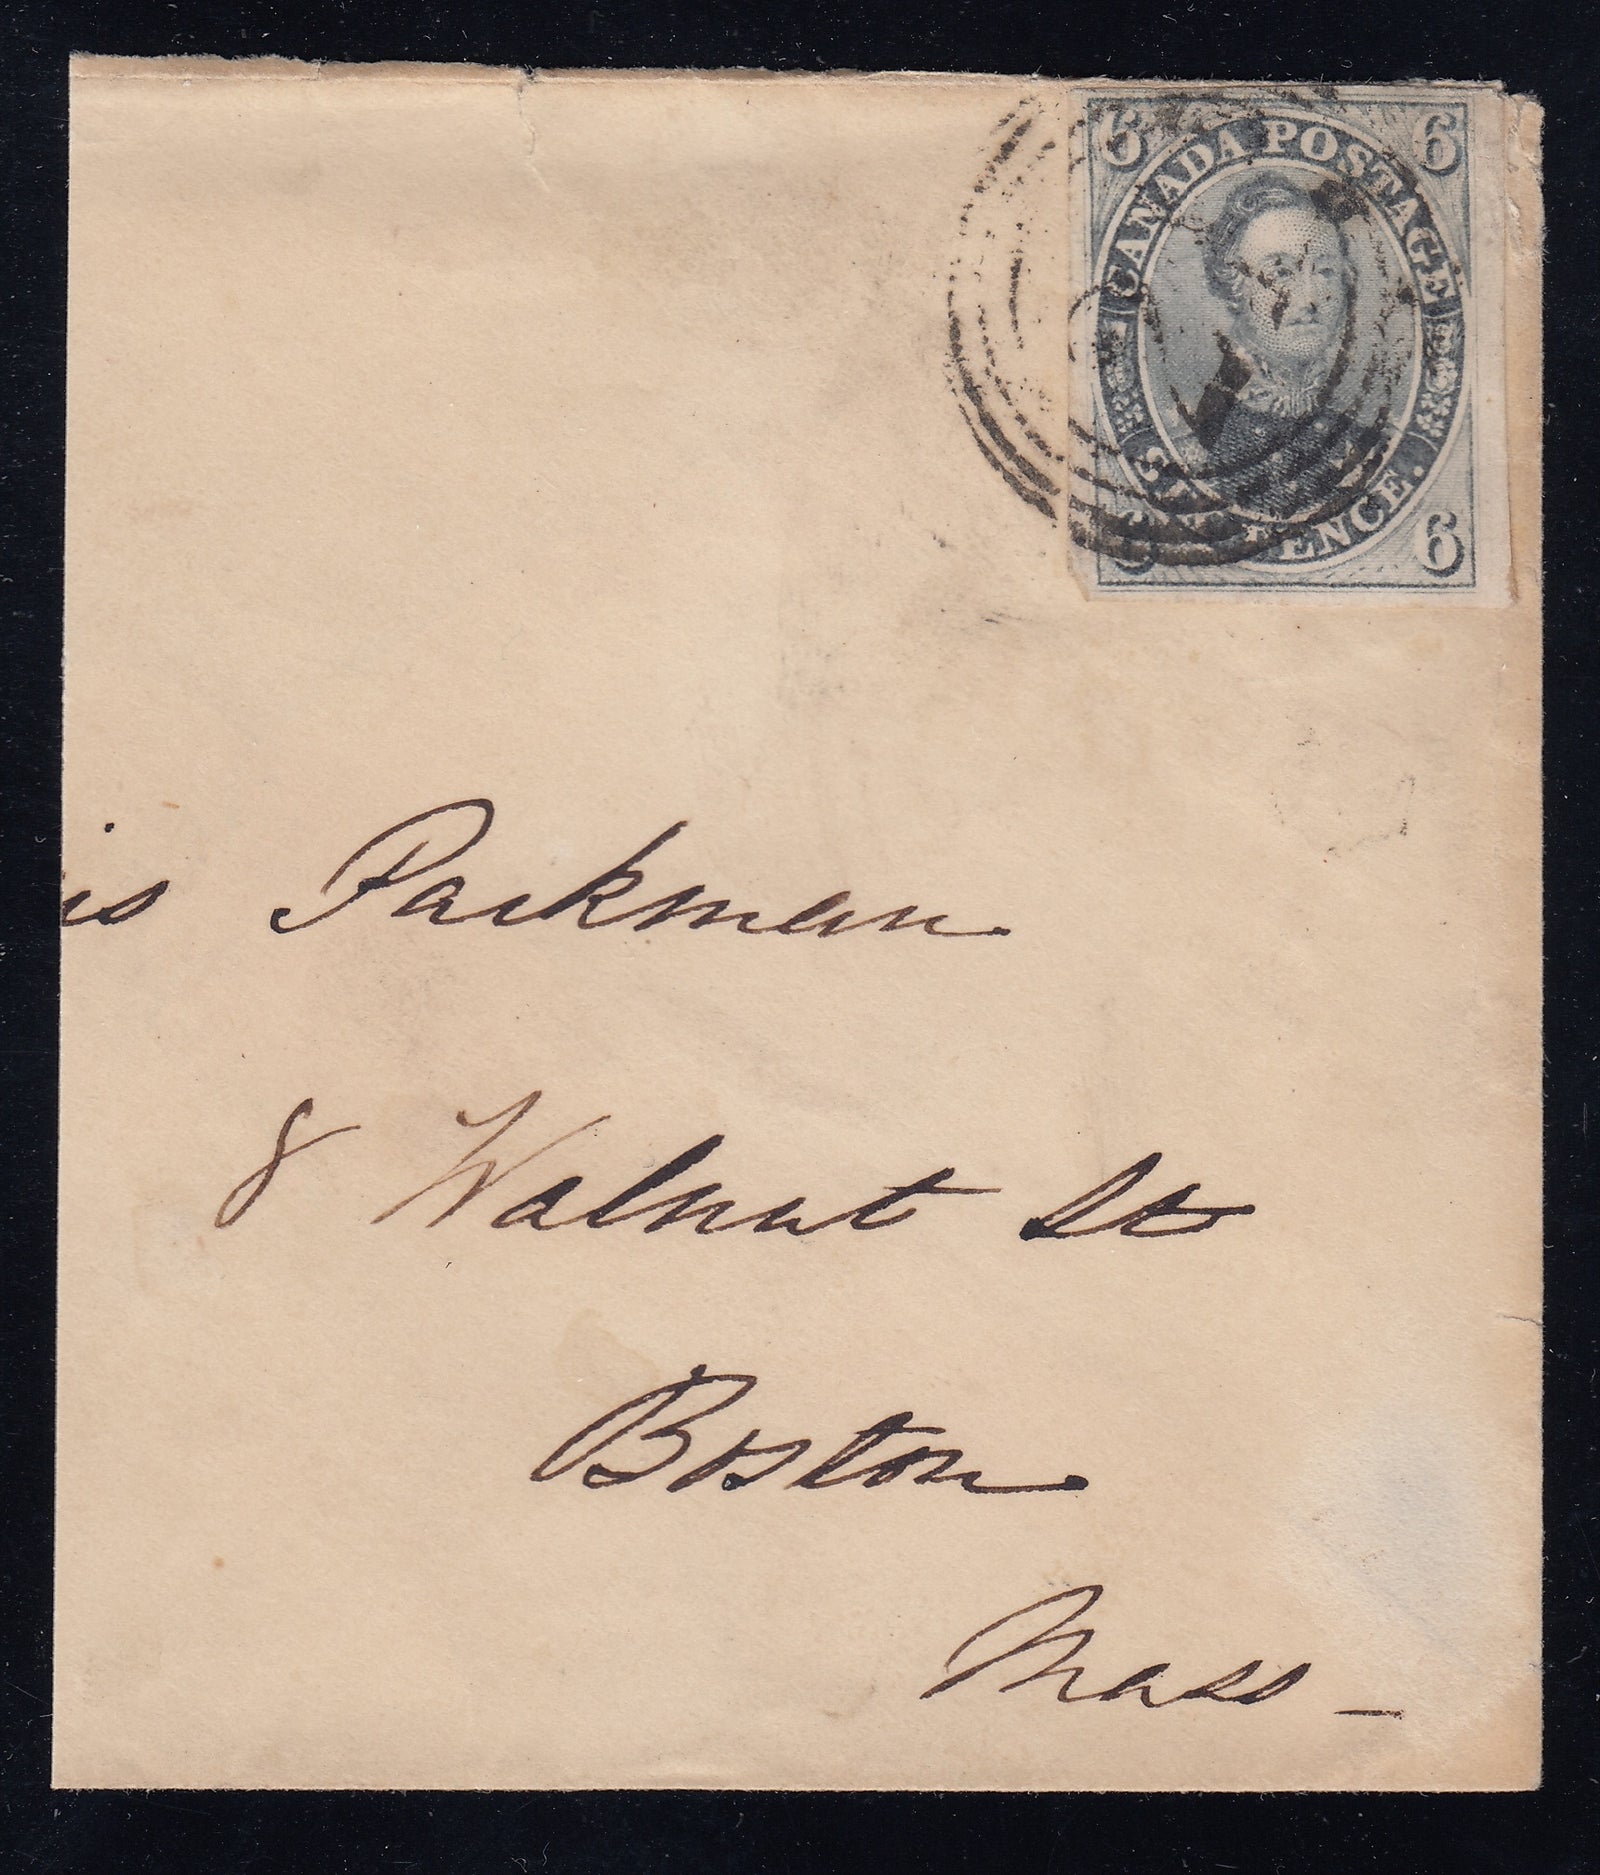 6 6
CANADA POSTAGE
SIX PENCE.
6 6
is Parkman
8 Walnut St
Boston
Mass -